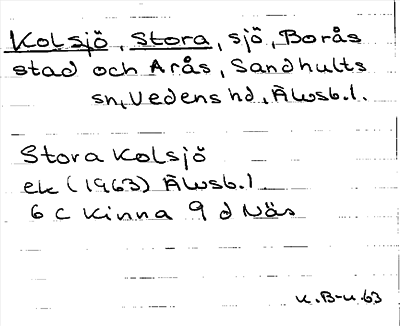 Kolsjö, Stora, sjö, Borås
stad och Arås, Sandhults
sn, Vedens hd, Älvsb.l.
Stora Kolsjö
ek (1963) Älvsb.l
6 C Kinna 9 d Näs
K.B-u.63